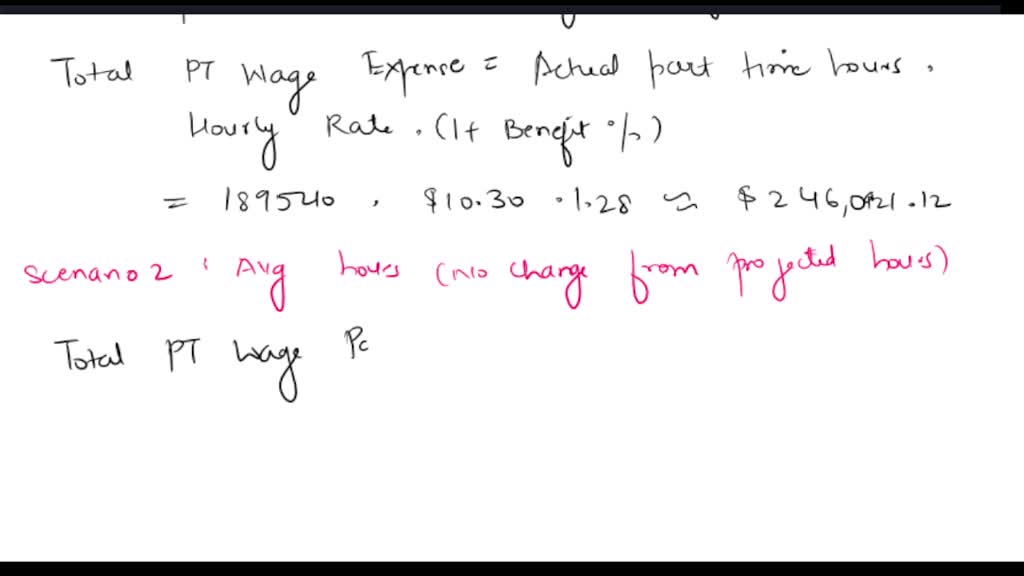 Total PT Wage Expense = Actual part time hours .
Hourly Rate . (1+ Benefit %)
= 189540 . $10.30 . 1.28 ≈ $ 246,0421.12
Scenario 2 : Avg hours (No change from projected hours)
Total PT Wage Pc